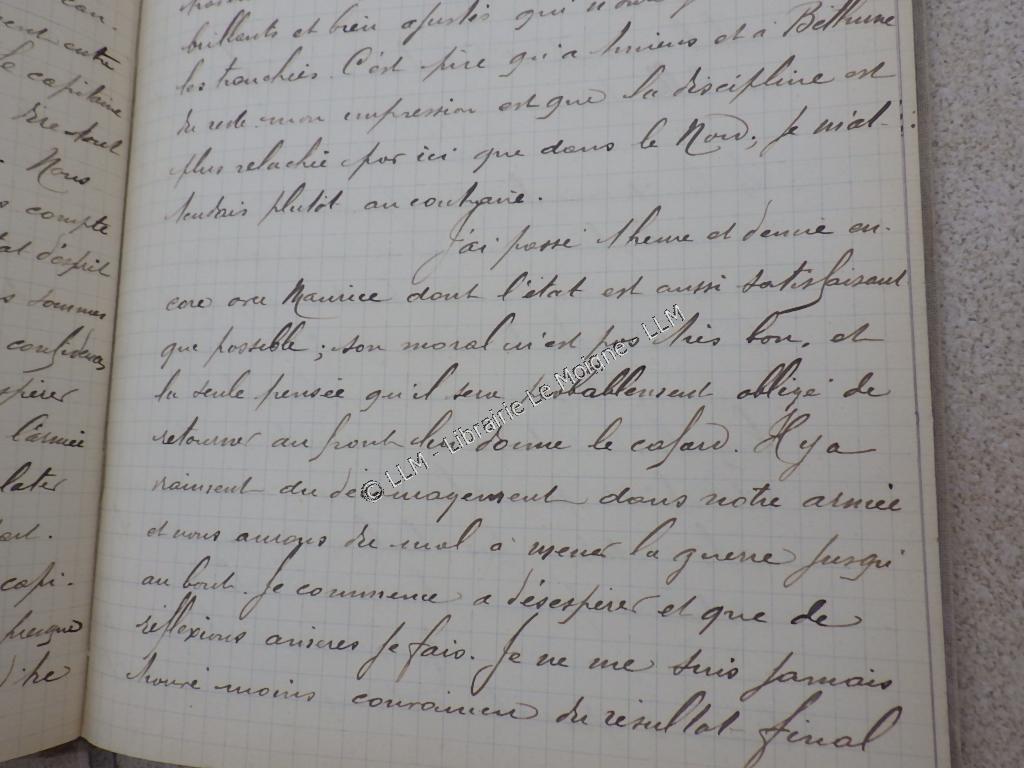 can.
ent entre
le capitaine
Nous
compte
tat d'esprit
s sommes
confidences
spérer
l'armée
later
capi-
presque
dire
brillants et bien ajustés qui n'ont
les tranchées. C'est pire qu'à Amiens et à Béthune
du reste mon impression est que la discipline est
plus relachée par ici que dans le Nord; Je m'at-
tendais plutôt au contraire.
J'ai passé 1 heure et demie en-
core avec Maurice dont l'état est aussi satisfaisant
que possible; son moral n'est pas très bon, et
la seule pensée qu'il sera probablement obligé de
retourner au front lui donne le cafard. Il y a
vraiment du découragement dans notre armée
et nous aurons du mal à mener la guerre jusqu'
au bout. Je commence à désespérer et que de
réflexions amères je fais. Je ne me suis jamais
trouvé moins convaincu du résultat final
© LLM - Librairie Le Moigne - LLM